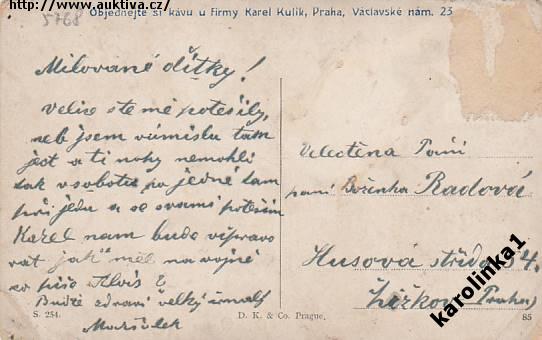 http://www.auktiva.cz/
5768
Objednejte si kávu u firmy Karel Kulík, Praha, Václavské nám. 23
Milované dítky!
velice ste mě potešily,
neb jsem v úmislu tam
jest a ti nohy nemohli
tak v sobotu po jedné tam
při jedu a se s vami potěším
Karel nam bude vipravo
vat jak měl na vojně
co píše Alois
Buďte zdraví velký
S. 254.
D. K. & Co. Prague.
85
Velectěna Paní
paní Boženka Radová
Husová střída 54.
Žižkov Praha
karolinka1